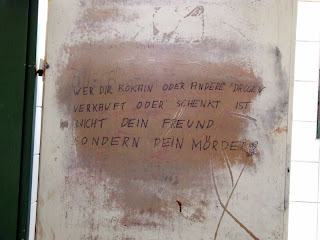 WER DIR KOKAIN ODER ANDERE DROGEN
VERKAUFT ODER SCHENKT IST
NICHT DEIN FREUND
SONDERN DEIN MÖRDER